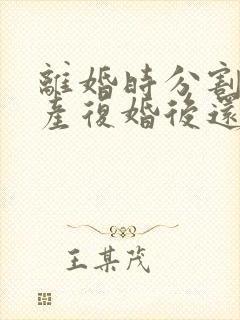 離婚時分割
産復婚後還
王某茂